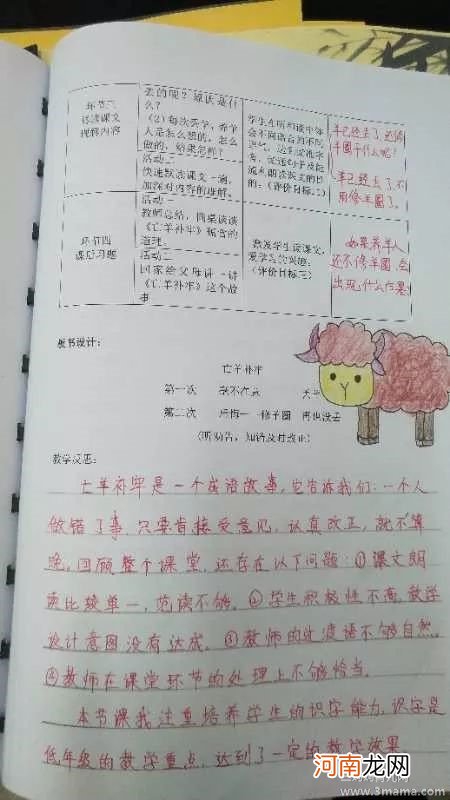 环节三
研读课文
理解内容
丢的呢？原因是什
么？
（2）每次丢羊，养羊
人是怎么想的，怎么
做的，结果怎样？
活动二
快速默读课文一遍，
加深对内容的理解。
（评价目标二）
羊已经丢了，还修
羊圈干什么呢？
羊已经丢了，不
用修羊圈了。
环节四
课后习题
活动一
教师总结，同桌谈谈
《亡羊补牢》蕴含的
道理。
活动二
回家给父母讲一讲
《亡羊补牢》这个故
事
激发学生读课文，
爱学习的兴趣。
（评价目标三）
如果养羊人
还不修羊圈，会
出现什么后果
板书设计：
亡羊补牢
第一次
第二次 后悔——修羊圈 再也没丢
（听劝告，知错及时改正）
教学反思：
亡羊补牢是一个成语故事，它告诉我们：一个人
做错了事，只要肯接受意见，认真改正，就不算
晚。回顾整个课堂，还存在以下问题：①课文朗
读比较单一，范读不够。②学生积极性不高，教学
设计意图没有达成。③教师的过渡语不够自然。
④教师在课堂环节的处理上不够恰当。
本节课我注重培养学生的识字能力，识字是
低年级的教学重点，达到了一定的教学效果
河南龙网
www.3mama.com